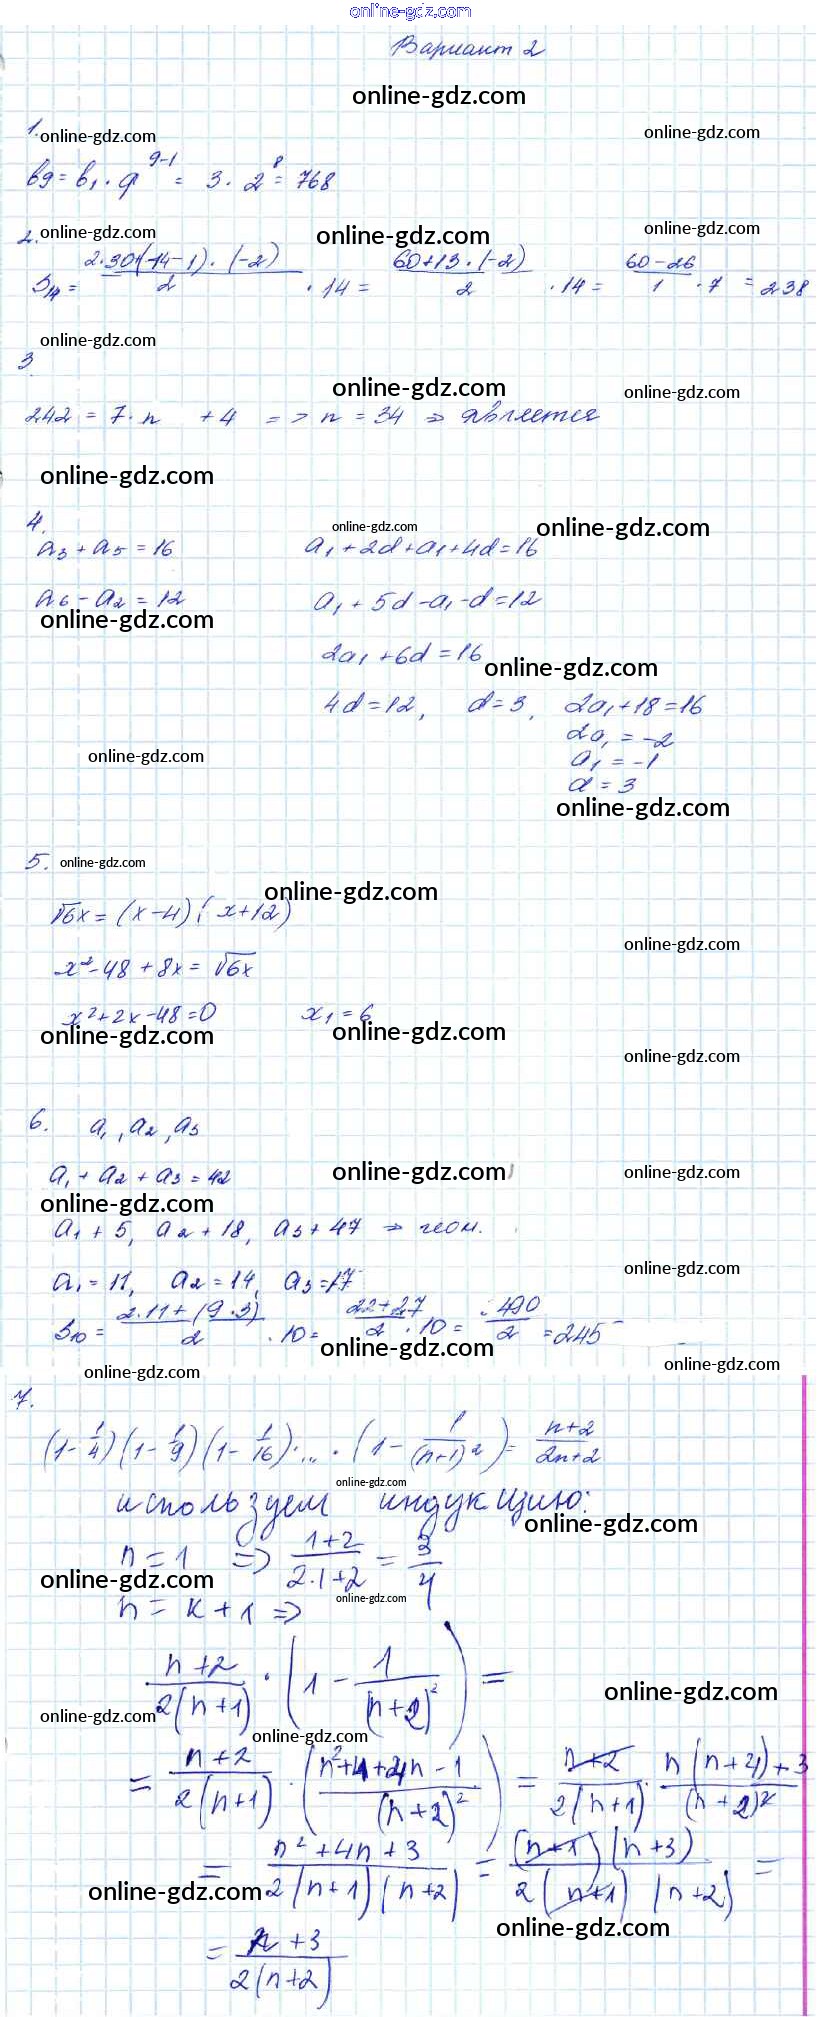 online-gdz.com
Вариант 2
online-gdz.com
1. online-gdz.com online-gdz.com
b9 = b1 · q^9-1 = 3 · 2^8 = 768
2. online-gdz.com online-gdz.com online-gdz.com
S14 = (2·30+(14-1)·(-2))/2 · 14 = (60+13·(-2))/2 · 14 = (60-26)/1 · 7 = 238
online-gdz.com
3
online-gdz.com online-gdz.com
242 = 7·n + 4 => n = 34 => является
online-gdz.com
4. online-gdz.com online-gdz.com
a3 + a5 = 16 a1 + 2d + a1 + 4d = 16
a6 - a2 = 12 a1 + 5d - a1 - d = 12
online-gdz.com
2a1 + 6d = 16 online-gdz.com
4d = 12, d = 3, 2a1 + 18 = 16
2a1 = -2
online-gdz.com a1 = -1
d = 3
online-gdz.com
5. online-gdz.com
online-gdz.com
√6x = (x-4)(x+12)
online-gdz.com
x² - 48 + 8x = √6x
x² + 2x - 48 = 0 x1 = 6
online-gdz.com online-gdz.com
online-gdz.com
6. a1, a2, a3
a1 + a2 + a3 = 42 online-gdz.com online-gdz.com
online-gdz.com
a1 + 5, a2 + 18, a3 + 47 => геом.
online-gdz.com
a1 = 11, a2 = 14, a3 = 17
S10 = (2·11+(9·3))/2 · 10 = (22+27)/2 · 10 = 490/2 = 245
online-gdz.com
online-gdz.com online-gdz.com
7.
(1 - 1/4)(1 - 1/9)(1 - 1/16)·...·(1 - 1/(n+1)²) = (n+2)/(2n+2)
online-gdz.com
используем индукцию:
online-gdz.com
n = 1 => (1+2)/(2·1+2) = 3/4
online-gdz.com
n = k + 1 => online-gdz.com
(n+2)/(2(n+1)) · (1 - 1/(n+2)²) =
online-gdz.com
online-gdz.com
online-gdz.com
= (n+2)/(2(n+1)) · ((n²+4+4n-1)/(n+2)²) = (n+2)/(2(n+1)) · (n(n+4)+3)/(n+2)²
= (n²+4n+3)/(2(n+1)(n+2)) = ((n+1)(n+3))/(2(n+1)(n+2)) =
online-gdz.com
online-gdz.com
= (n+3)/(2(n+2))